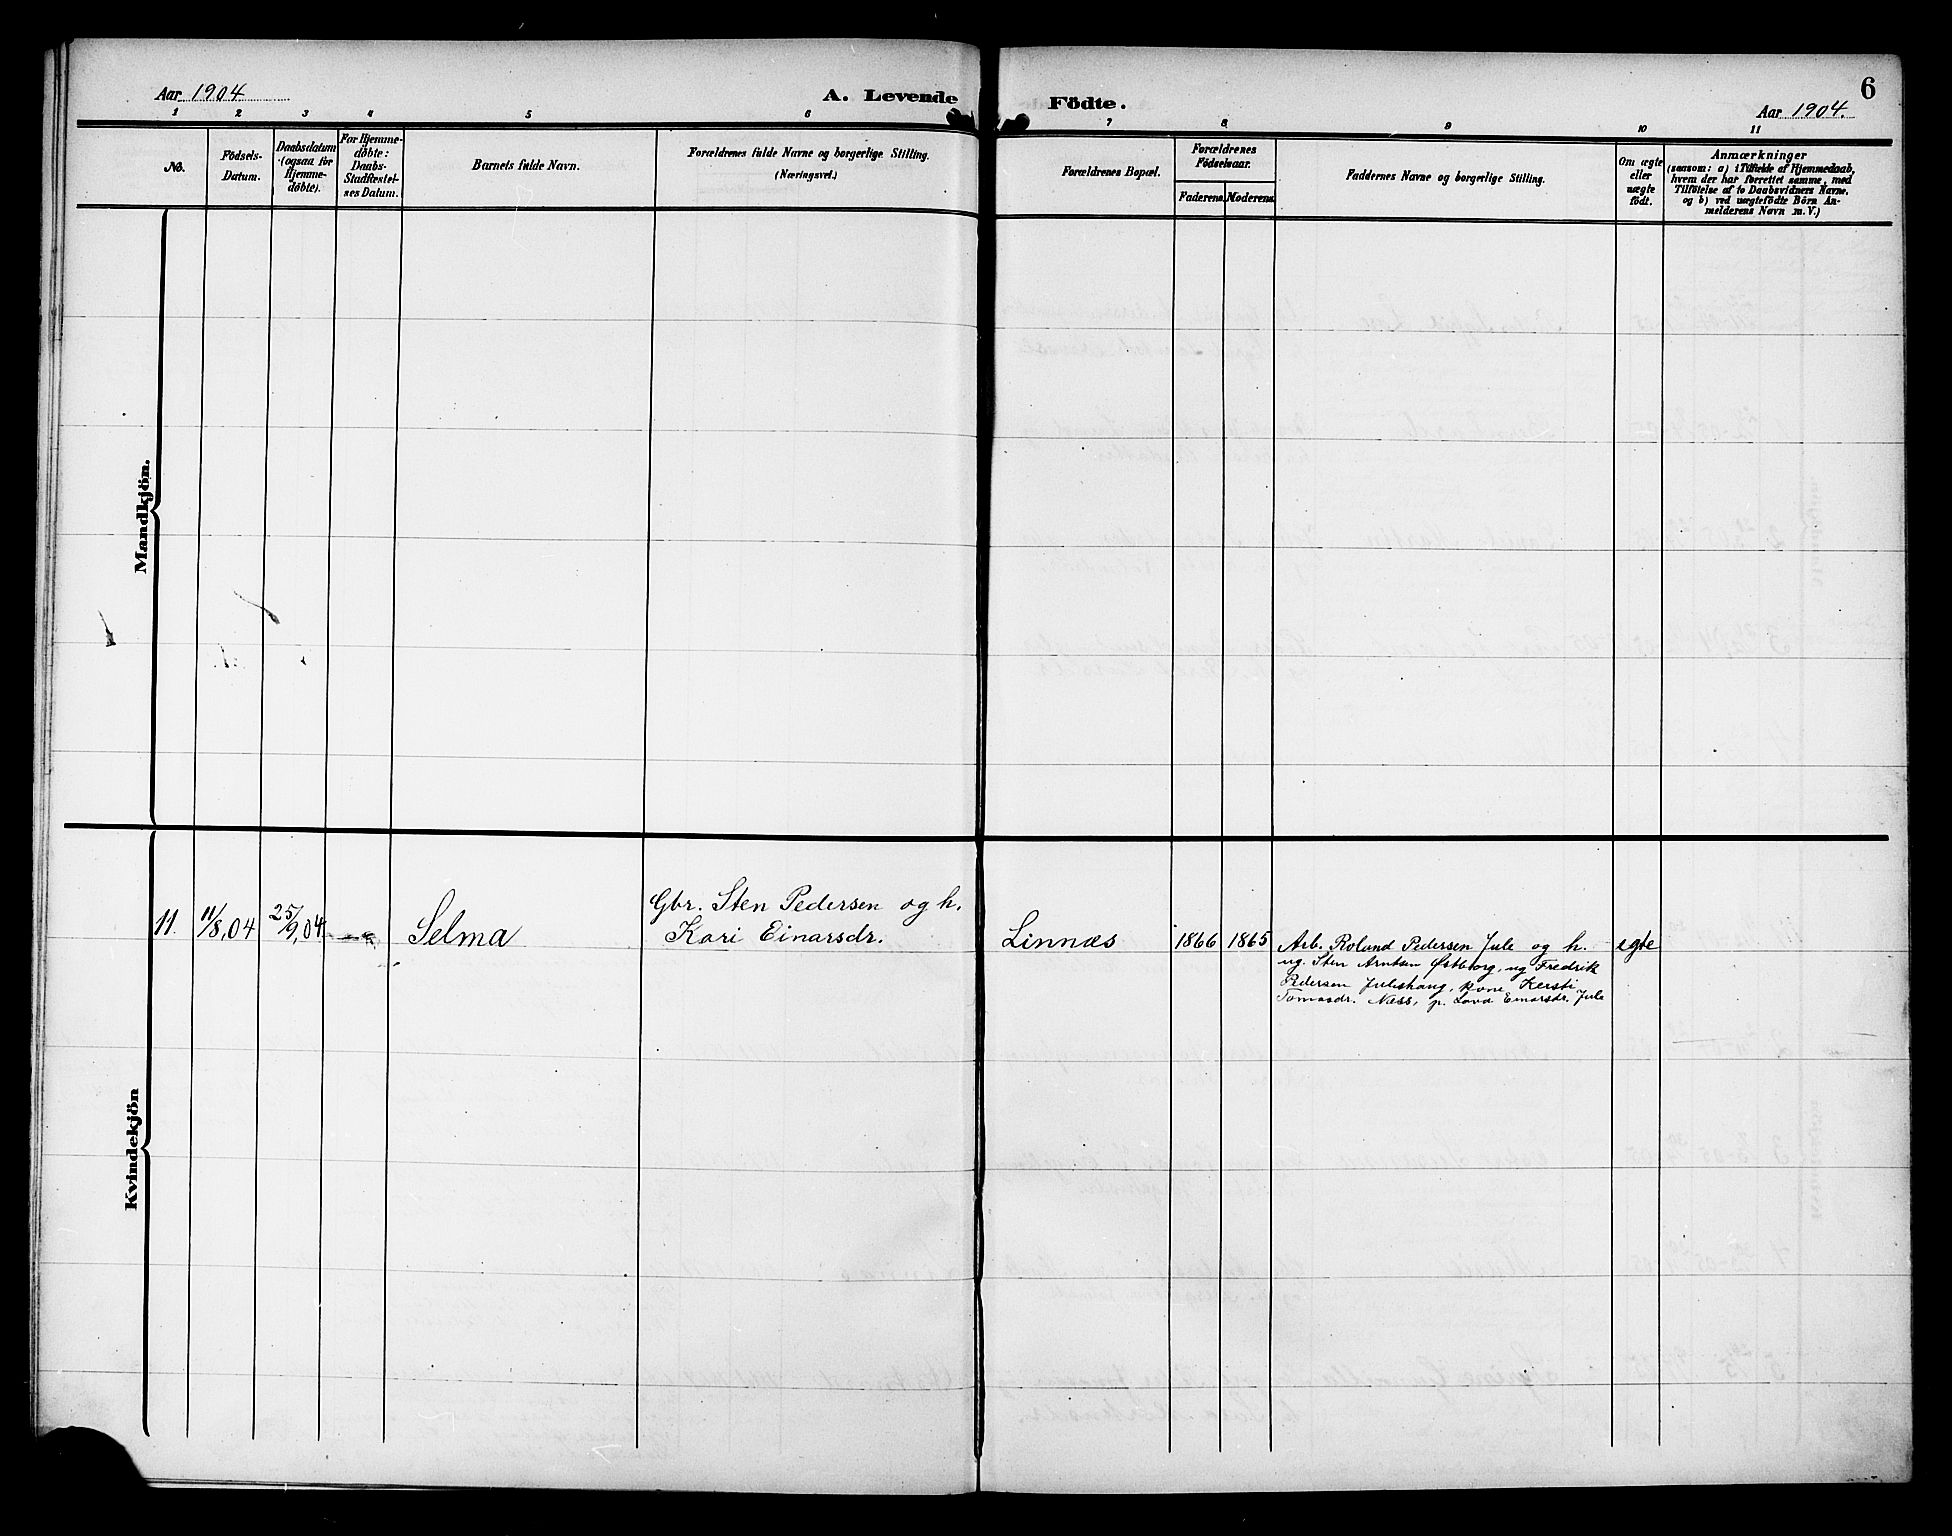 Aar 1904
A. Levende Födte.
Aar 1904.
6
1 2 3 4 5 6 7 8 9 10 11
No.
Födsels-
Datum.
Daabsdatum
(ogsaa for
Hjemme-
döbte).
For Hjemme-
döbte:
Daabs-
Stadfæstel-
ses Datum.
Barnets fulde Navn.
Forældrenes fulde Navne og borgerlige Stilling.
(Næringsvei.)
Forældrenes Bopæl.
Forældrenes
Födselsaar.
Faderens. Moderens.
Faddernes Navne og borgerlige Stilling.
Om ægte
eller
uægte
födt.
Anmærkninger
(saasom: a) i Tilfælde af Hjemmedaab,
hvem der har forrettet samme, med
Tilföielse af to Daabsvidners Navne,
og b) ved uægtefödte Börn An-
melderens Navn m. V.)
Mandkjön.
Kvindekjön
11. 11/8,04 25/9,04 — Selma
Gbr. Sten Pedersen og h.
Kari Einarsdr.
Linnæs 1866 1865
Arb. Rolund Pedersen Jule og h.
ug. Sten Arntsen Østborg, ug Fredrik
Pedersen Juleshaug, kone Kersti
Tomasdr. Næss, p. Lava Einarsdr. Jule
egte